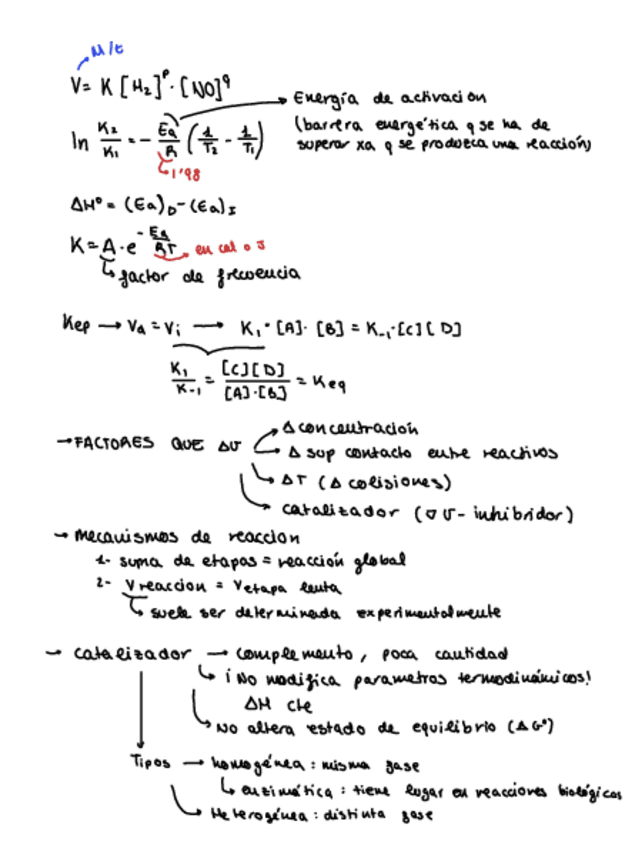 M/t
V= K [H₂]ᵖ · [NO]^q
Energía de activación
ln K₂/K₁ = - Ea/R (1/T₂ - 1/T₁)
(barrera energética q se ha de
superar xa q se produzca una reacción)
1'98
ΔHº = (Ea)D - (Ea)I
K = A · e^(-Ea/RT) en cal o J
factor de frecuencia
Kep → Vd = Vi → K₁ · [A] · [B] = K₋₁ · [C] [D]
K₁/K₋₁ = [C][D]/[A]·[B] = Keq
→ FACTORES QUE ΔV
Δ concentración
Δ sup contacto entre reactivos
ΔT (Δ colisiones)
catalizador (∇ V - inhibridor)
→ Mecanismos de reaccion
1- suma de etapas = reacción global
2- V reaccion = V etapa lenta
suele ser determinada experimentalmente
→ catalizador → complemento, poca cantidad
¡No modifica parametros termodinámicos!
ΔH cte
No altera estado de equilibrio (ΔGº)
Tipos → homogénea : misma fase
enzimática : tiene lugar en reacciones biológicas
Heterogénea : distinta fase